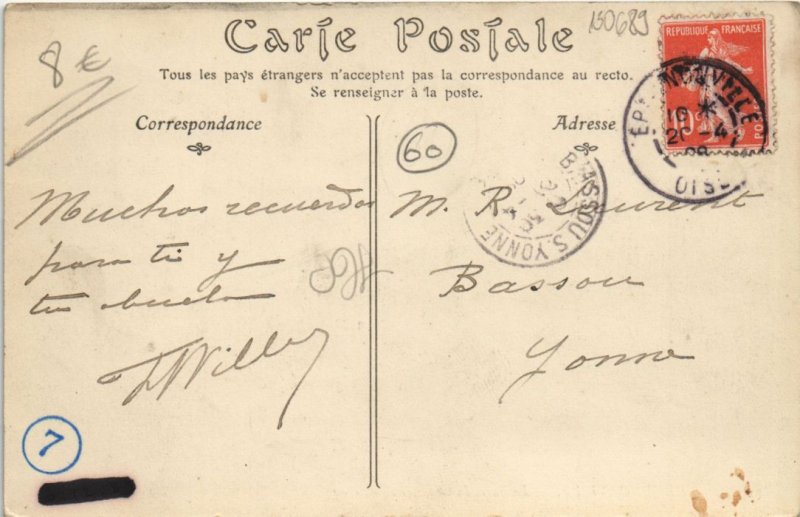 8 €
150689
Carte Postale
RÉPUBLIQUE FRANÇAISE
Tous les pays étrangers n'acceptent pas la correspondance au recto.
Se renseigner à la poste.
Correspondance
Adresse
60
10
POSTES
OISE
BASSOU S. YONNE
Muchos recuerdos
para ti y
tu abuela
Willy
M. R. Laurent
Bassou
Yonne
7